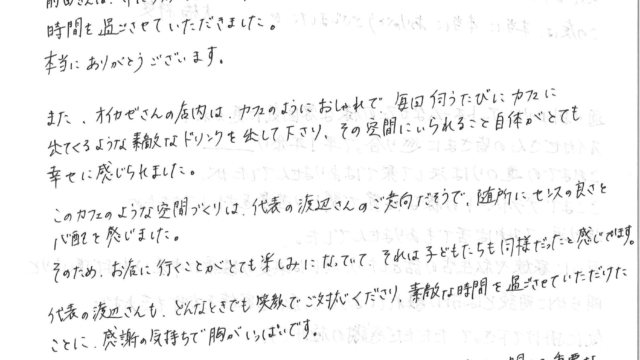 時間を過ごさせていただきました。
本当にありがとうございます。
また、オイカゼさんの店内は、カフェのようにおしゃれで、毎回伺うたびにカフェに
出てくるような素敵なドリンクを出して下さり、その空間にいられること自体がとても
幸せに感じられました。
このカフェのような空間づくりは、代表の渡辺さんのご意向だそうで、随所にセンスの良さと
心配りを感じました。
そのため、お店に行くことがとても楽しみになっていて、それは子どもたちも同様だったと感じます。
代表の渡辺さんも、どんなときでも笑顔でご対応くださり、素敵な時間を過ごさせていただけた
ことに、感謝の気持ちで胸がいっぱいです。